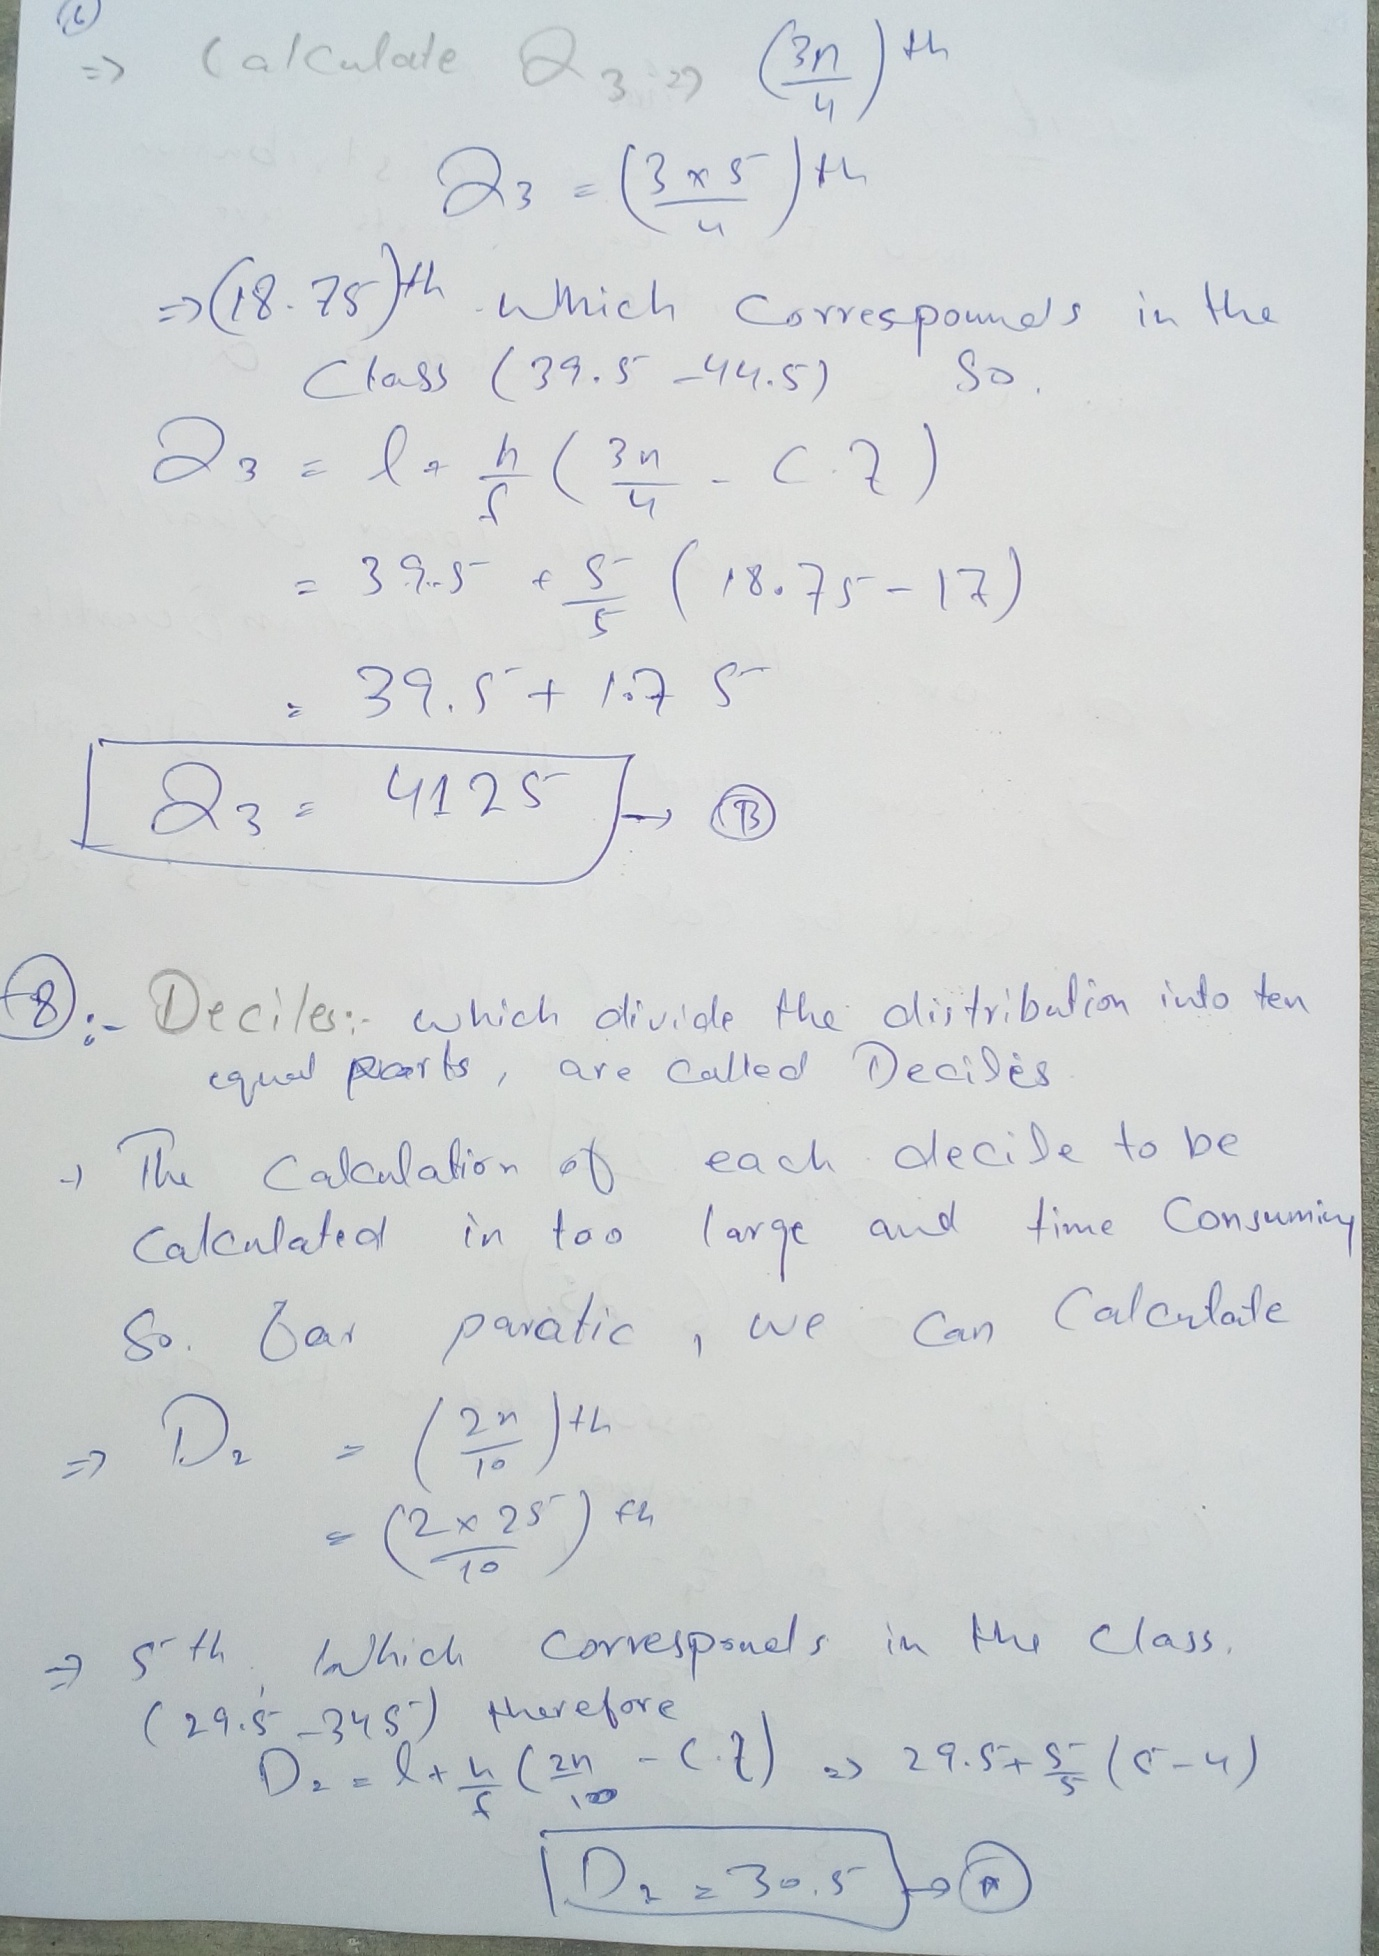 ⇒ Calculate Q3 ⇒ (3n/4)th
Q3 = (3×5/4)th
⇒ (18.75)th which Correspounds in the
Class (39.5 - 44.5) So.
Q3 = l + h/f (3n/4 - C.f)
= 39.5 + 5/5 (18.75 - 17)
= 39.5 + 1.75
Q3 = 4125 → (B)
(8):- Deciles:- which divide the distribution into ten
equal parts, are called Deciles
→ The Calculation of each decile to be
Calculated in too large and time Consuming
So. we can Calculate
⇒ D2 = (2n/10)th
= (2×25/10)th
⇒ 5th. Which Corresponds in the Class.
(29.5 - 345) therefore
D2 = l + h/f (2n/10 - C.f) ⇒ 29.5 + 5/5 (5 - 4)
D2 = 30.5 → (A)